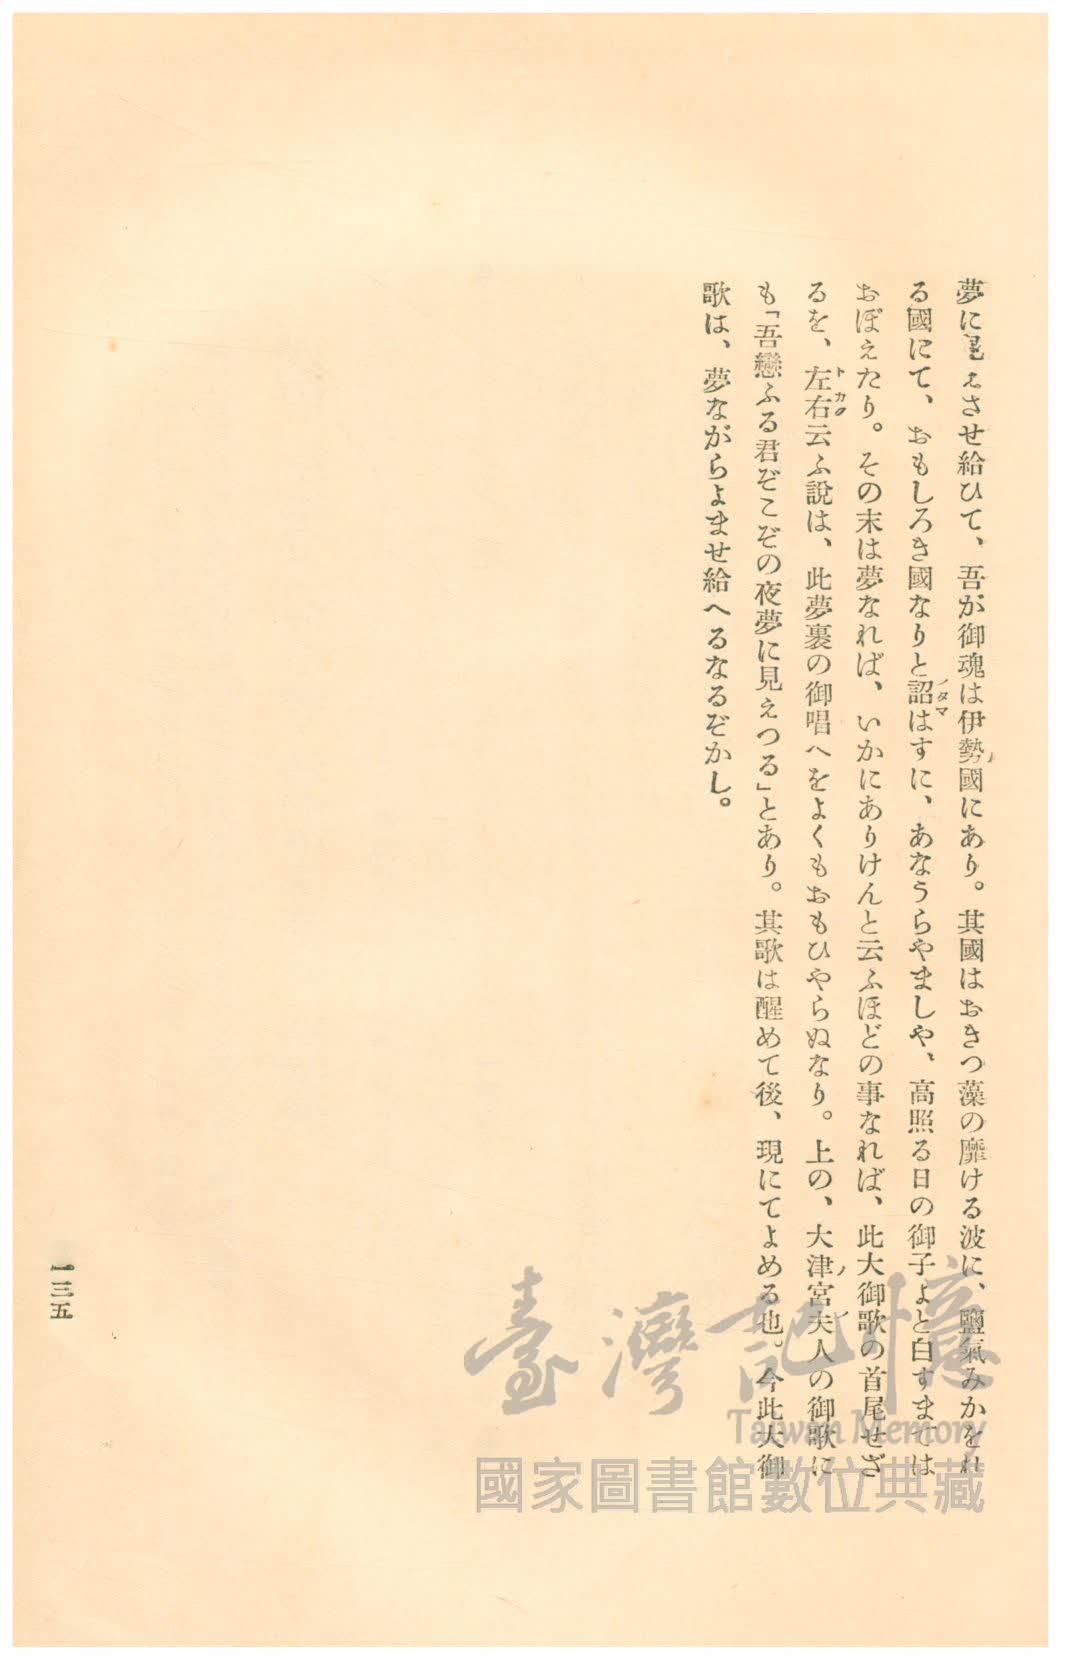 夢に見えさせ給ひて、吾が御魂は伊勢ノ國にあり。其國はおきつ藻の靡ける波に、鹽氣みかをれ
る國にて、おもしろき國なりと詔はすに、あなうらやましや、高照る日の御子よと白すまでは
おぼえたり。その末は夢なれば、いかにありけんと云ふほどの事なれば、此大御歌の首尾せざ
るを、左右云ふ說は、此夢裏の御唱へをよくもおもひやらぬなり。上の、大津ノ宮夫人の御歌に
も「吾戀ふる君ぞこぞの夜夢に見えつる」とあり。其歌は醒めて後、現にてよめる也。今此大御
歌は、夢ながらよませ給へるなるぞかし。
ノタマ
トカク
一三五
臺灣記憶
Taiwan Memory
國家圖書館數位典藏